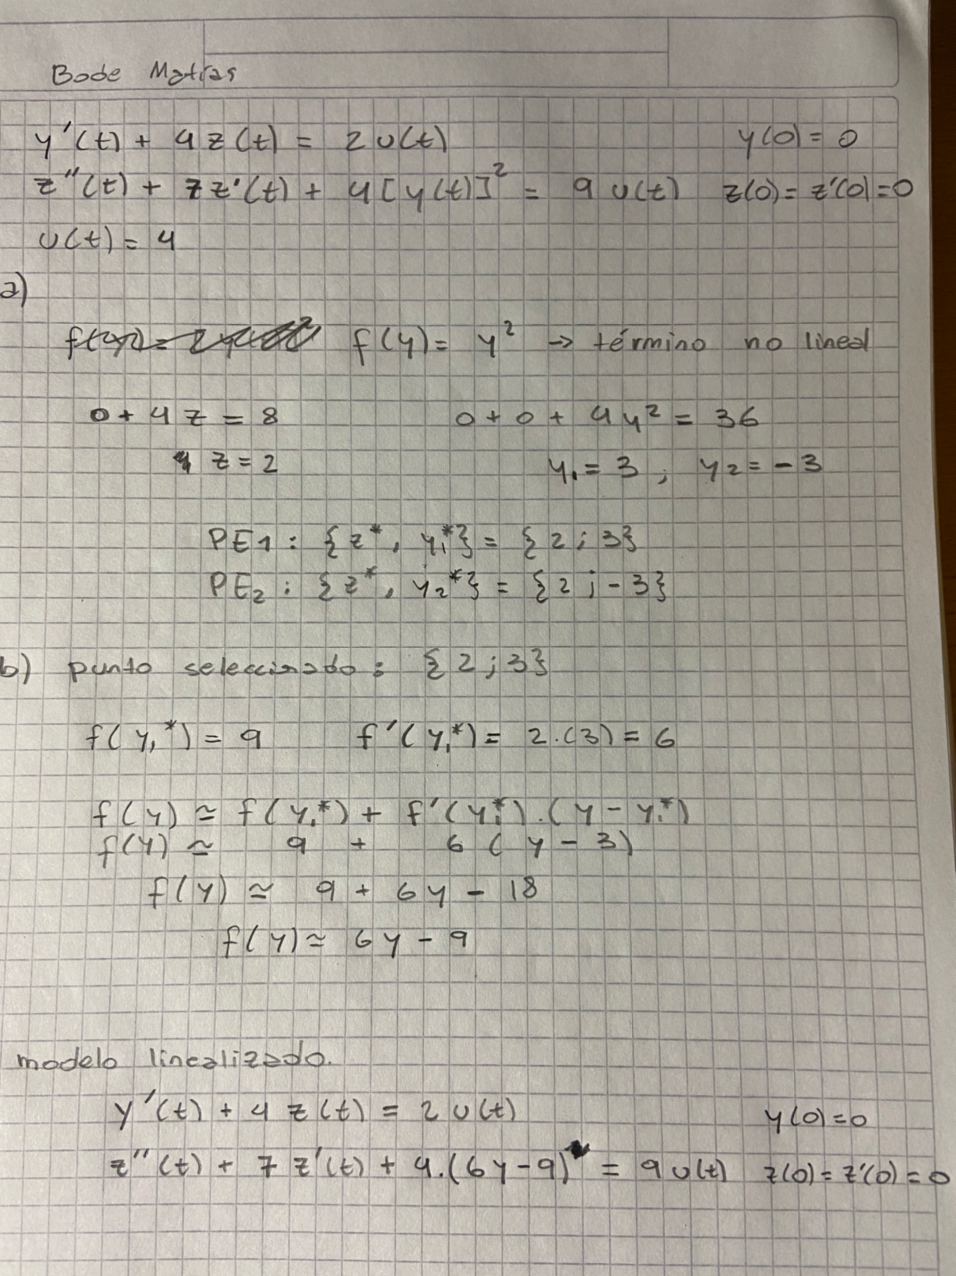 Bode Matías
y'(t) + 4 z(t) = 2 u(t) y(0) = 0
z''(t) + 7z'(t) + 4[y(t)]² = 9 u(t) z(0) = z'(0) = 0
u(t) = 4
a)
f(y) = y² → término no lineal
0 + 4 z = 8 0 + 0 + 4y² = 36
z = 2 y₁ = 3 ; y₂ = -3
PE1 : {z*, y₁*} = {2 ; 3}
PE₂ : {z*, y₂*} = {2 ; -3}
b) punto seleccionado : {2 ; 3}
f(y₁*) = 9 f'(y₁*) = 2.(3) = 6
f(y) ≃ f(y₁*) + f'(y₁*).(y - y₁*)
f(y) ≃ 9 + 6 (y - 3)
f(y) ≃ 9 + 6y - 18
f(y) ≃ 6y - 9
modelo linealizado.
y'(t) + 4 z(t) = 2 u(t) y(0) = 0
z''(t) + 7 z'(t) + 4.(6y-9) = 9 u(t) z(0) = z'(0) = 0